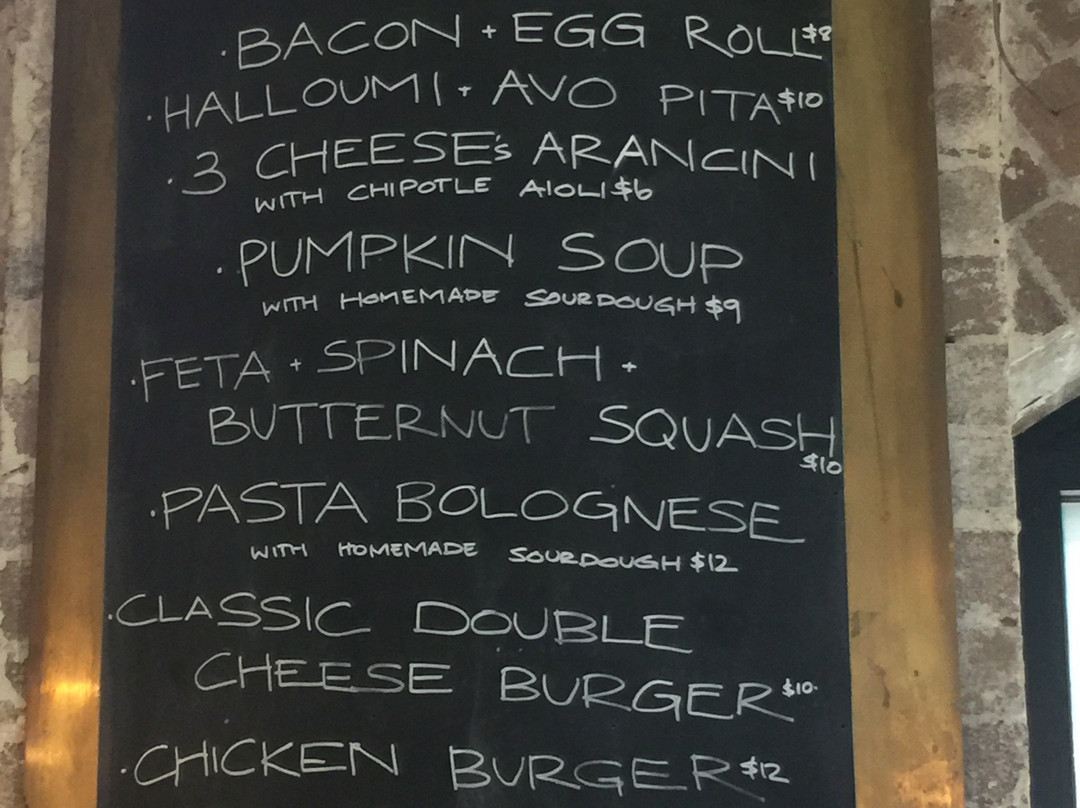 ·BACON + EGG ROLL $8
·HALLOUMI + AVO PITA $10
·3 CHEESE's ARANCINI
WITH CHIPOTLE AIOLI $6
·PUMPKIN SOUP
WITH HOMEMADE SOURDOUGH $9
·FETA + SPINACH +
BUTTERNUT SQUASH
$10
·PASTA BOLOGNESE
WITH HOMEMADE SOURDOUGH $12
·CLASSIC DOUBLE
CHEESE BURGER $10·
·CHICKEN BURGER $12